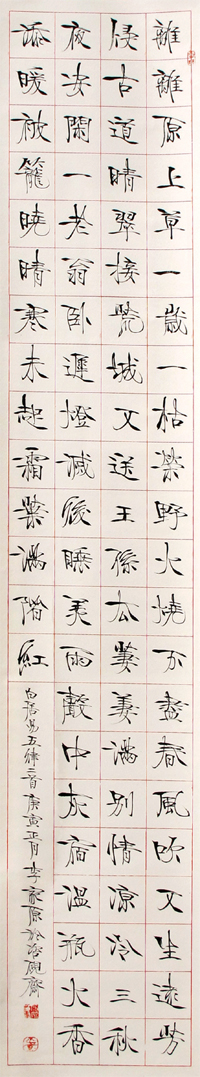 離離原上草一歲一枯榮野火燒不盡春風吹又生遠芳
侵古道晴翠接荒城又送王孫去萋萋滿別情涼冷三秋
夜安閑一老翁臥遲燈滅後睡美雨聲中灰宿溫瓶火香
添暖被籠曉晴寒未起霜葉滿階紅
白居易五律二首庚寅正月李家原於硯齋